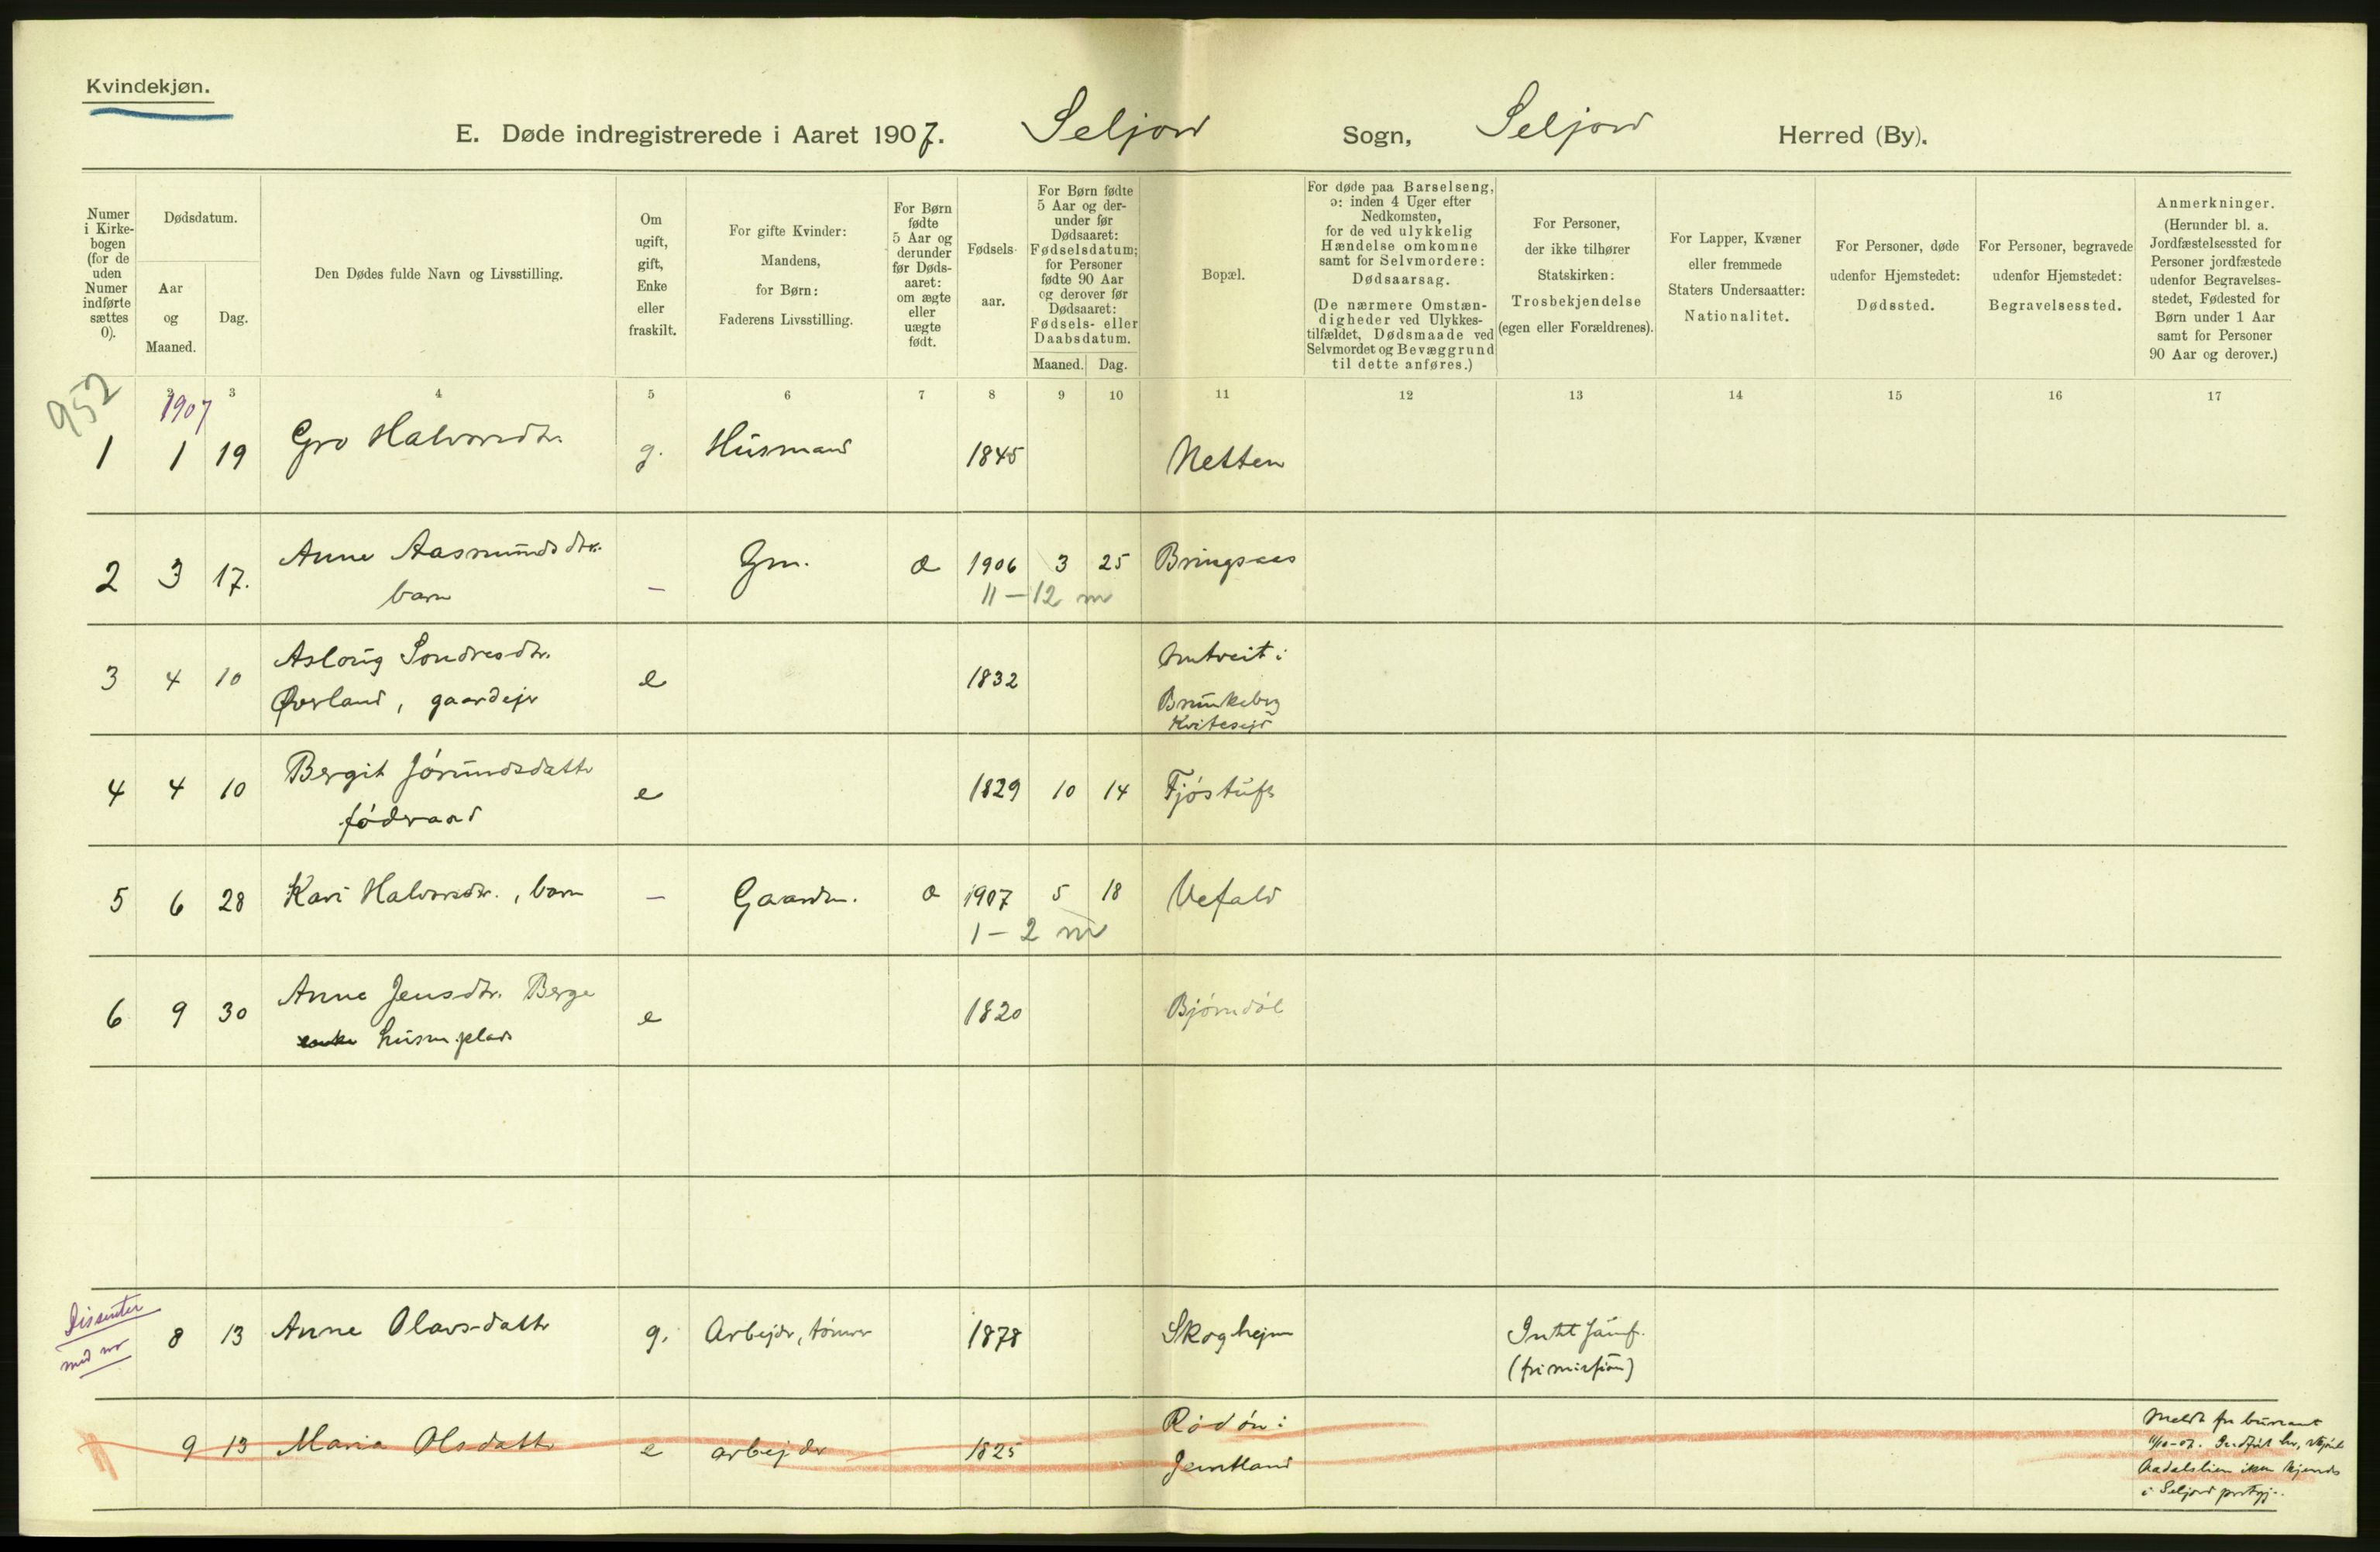 Kvindekjøn.
E. Døde indregistrerede i Aaret 1907. Seljord Sogn, Seljord Herred (By).
Numer i Kirke-bogen (for de uden Numer indførte sættes 0).
Dødsdatum.
Aar og Maaned.
Dag.
Den Dødes fulde Navn og Livsstilling.
Om ugift, gift, Enke eller fraskilt.
For gifte Kvinder: Mandens, for Børn: Faderens Livsstilling.
For Børn fødte 5 Aar og derunder før Døds-aaret: om ægte eller uægte født.
Fødsels-aar.
For Børn fødte 5 Aar og der-under før Dødsaaret: Fødselsdatum; for Personer fødte 90 Aar og derover før Dødsaaret: Fødsels- eller Daabsdatum.
Maaned. Dag.
Bopæl.
For døde paa Barselseng, ɔ: inden 4 Uger efter Nedkomsten, for de ved ulykkelig Hændelse omkomne samt for Selvmordere: Dødsaarsag.
(De nærmere Omstæn-digheder ved Ulykkes-tilfældet, Dødsmaade ved Selvmordet og Bevæggrund til dette anføres.)
For Personer, der ikke tilhører Statskirken: Trosbekjendelse (egen eller Forældrenes).
For Lapper, Kvæner eller fremmede Staters Undersaatter: Nationalitet.
For Personer, døde udenfor Hjemstedet: Dødssted.
For Personer, begravede udenfor Hjemstedet: Begravelsessted.
Anmerkninger.
(Herunder bl. a. Jordfæstelsessted for Personer jordfæstede udenfor Begravelses-stedet, Fødested for Børn under 1 Aar samt for Personer 90 Aar og derover.)
2 3 4 5 6 7 8 9 10 11 12 13 14 15 16 17
952
1907
1 1 19 Gro Halvorsdtr. g. Husmand 1845 Netten
2 3 17. Anne Aasmundsdtr. — Gm. æ 1906 3 25 Bringsaas
barn 11 — 12 m
3 4 10 Aslaug Sondresdtr. e 1832 i
Øverland, gaardejer Brunkeberg
Kvitesejd
4 4 10 Bergit Jörundsdatter e 1829 10 14 Fjöstuft
föderaad
5 6 28 Kari Halvorsdtr., barn — Gaardm. æ 1907 5 18 Vefald
1 — 2 m
6 9 30 Anne Jensdtr. Berge e 1820 Björndöl
enke husm.plads
Dissenter
med no
8 13 Anne Olavsdatter g. Arbejder, tömrer 1878 Skoghejm
(fri mission)
9 13 Maria Olsdatter e arbejder 1825 Rödön i
Jemtland
Meldt fra
11/10-07.
ikke kjendt
i Seljord